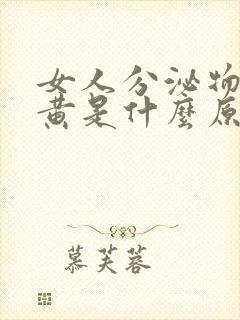 女人分泌物
黄是什麼原
慕芙蓉